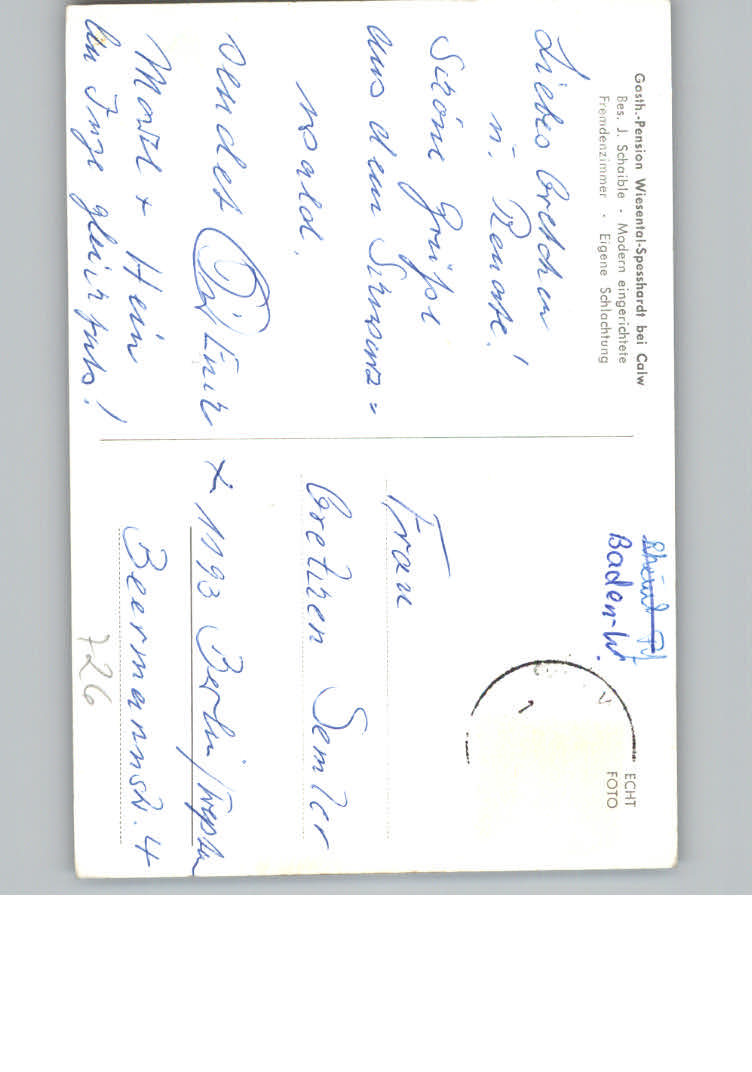 Gasth.-Pension Wiesental-Spesshardt bei Calw
Bes. J. Schaible · Modern eingerichtete
Fremdenzimmer · Eigene Schlachtung
Liebes Gretchen
u. Renate!
Schöne Grüße
aus dem Schwarz=
wald.
sendet Euch
+ Hein
Inge
Baden-W.
ECHT
FOTO
Frau
Gretchen Semler
1193 Berlin/Treptow
Beermannstr. 4
726